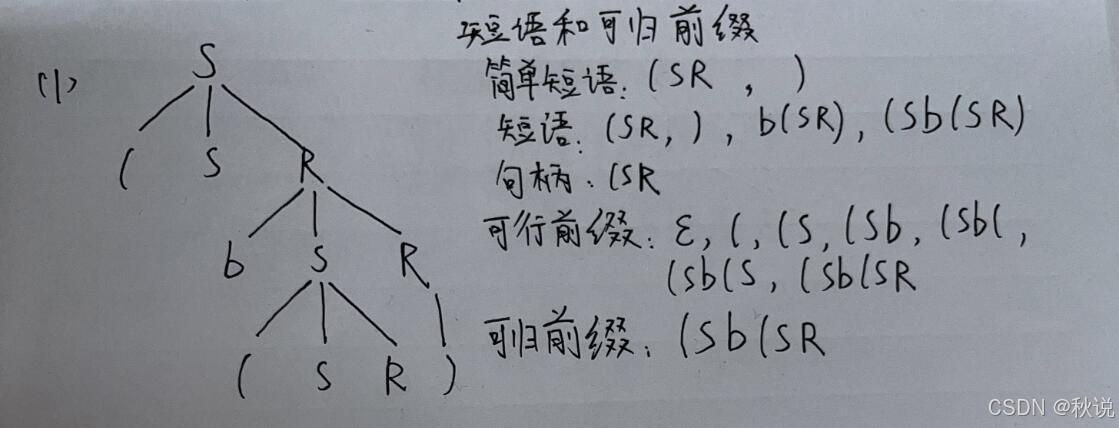 短语和可归前缀
(1)
S
简单短语: (SR , )
短语: (SR, ), b(SR), (Sb(SR)
( S R
句柄: (SR
b S R
可行前缀: ε, (, (S, (Sb, (Sb(,
(Sb(S, (Sb(SR
( S R )
可归前缀: (Sb(SR
CSDN @秋说